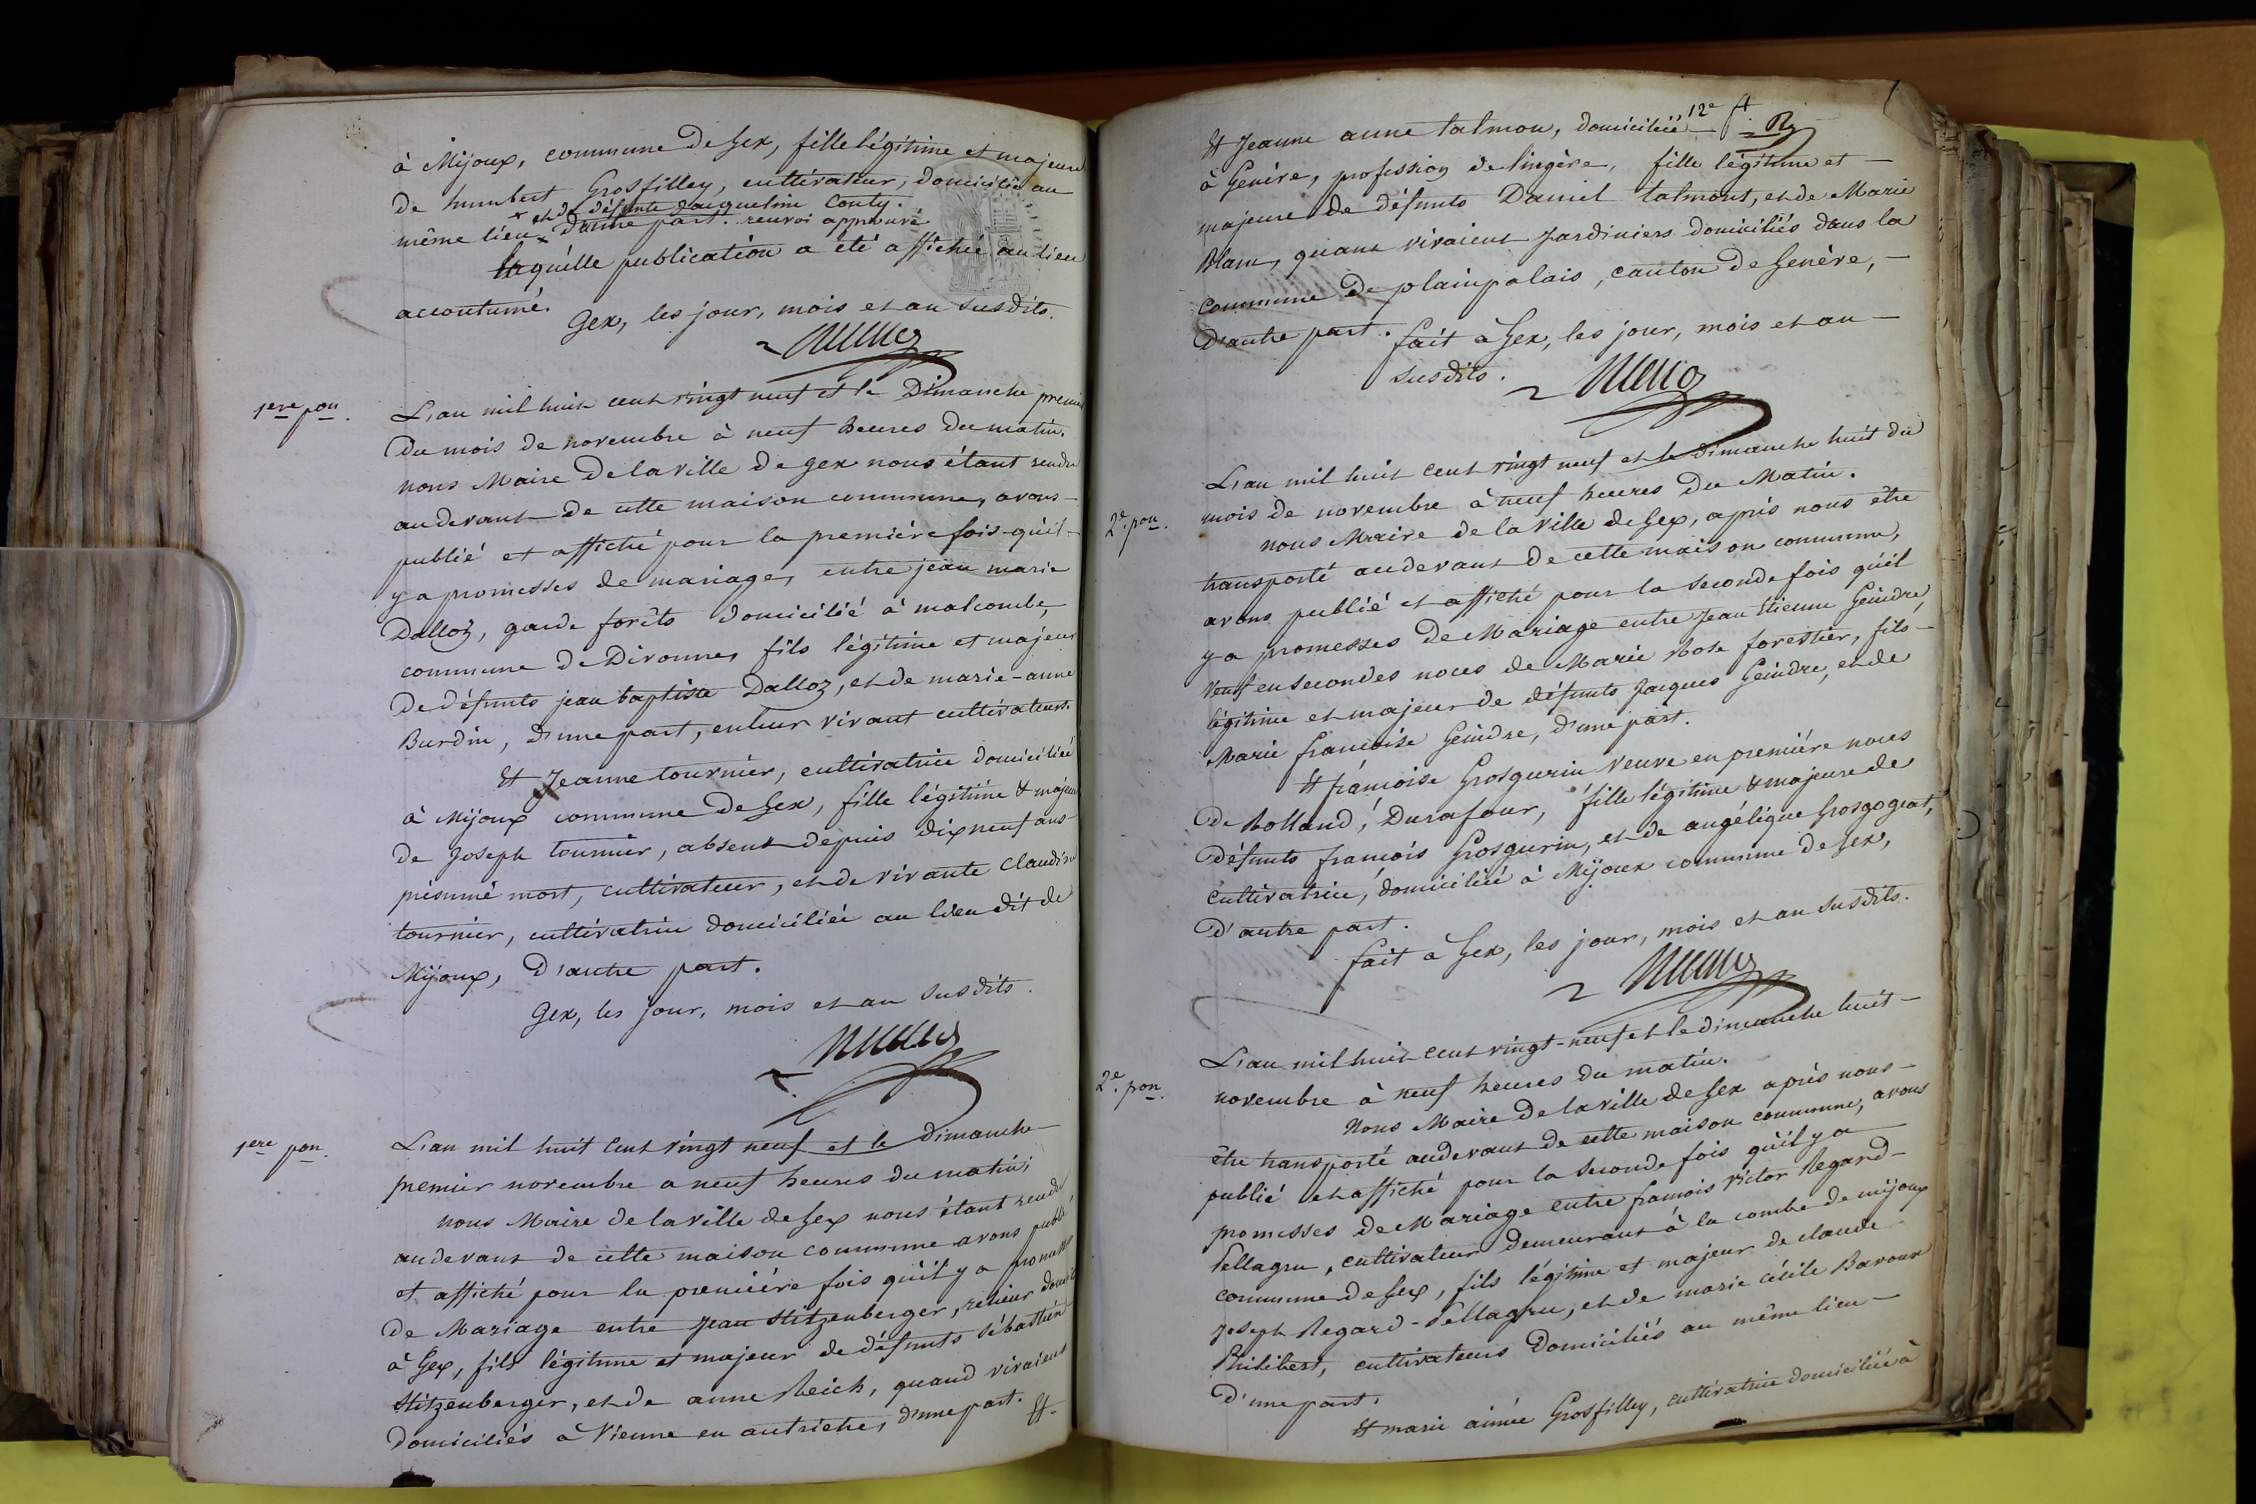 à Mijoux, commune de Gex, fille légitime et majeure
de humbert Grosfilley, cultivateur, domicilié au
× et de défunte Jacqueline Conty.
même lieu × d'autre part. renvoi approuvé
Laquelle publication a été affichée au lieu
accoutumé.
Gex, les jour, mois et an susdits.
1ere pon.
L'an mil huit cent vingt neuf et le Dimanche premier
du mois de novembre à neuf heures du matin.
nous Maire de la ville de gex nous étant rendu
au devant de cette maison commune, avons
publié et affiché pour la première fois qu'il
y a promesses de mariage, entre jean marie
Dalloz, garde forêts domicilié à malcombe,
commune de Divonne, fils légitime et majeur
de défunts jean baptiste Dalloz, et de marie-anne
Burdin, d'une part, en leur vivant cultivateurs.
Et Jeanne tournier, cultivatrice domiciliée
à Mijoux commune de Gex, fille légitime & majeure
de Joseph tournier, absent depuis dix neuf ans
présumé mort, cultivateur, et de vivante Claudine
tournier, cultivatrice domiciliée au lieu dit de
Mijoux, d'autre part.
Gex, les jour, mois et an susdits.
1ere pon.
L'an mil huit cent vingt neuf et le Dimanche
premier novembre a neuf heures du matin,
nous Maire de la ville de Gex nous étant rendu
au devant de cette maison commune avons publié
et affiché pour la première fois qu'il y a promesses
de Mariage entre Jean Stitzenberger, relieur domicilié
à Gex, fils légitime et majeur de défunts Sébastien
Stitzenberger, et de anne Reich, quand vivaient
domiciliés à Vienne en autriche, d'une part. Et
12e ft
Et Jeanne anne talmon, domiciliée
à Genève, profession de lingère, fille légitime et
majeure de défunts Daniel talmont, et de Marie
Blanc, quant vivaient Jardiniers domiciliés dans la
commune de plainpalais, canton de Genève,
d'autre part. fait à Gex, les jour, mois et an
susdits.
2e. pon.
L'an mil huit cent vingt neuf et le dimanche huit du
mois de novembre à neuf heures du Matin.
nous Maire de la ville de Gex, après nous être
transporté audevant de cette maison commune,
avons publié et affiché pour la seconde fois qu'il
y a promesses de Mariage entre Jean Etienne Geindre,
veuf en secondes noces de Marie Rose forestier, fils
légitime et majeur de défunts Jacques Geindre, et de
Marie françoise Geindre, d'une part.
Et françoise Grosgurin veuve en première noces
de Rolland, Durafour, fille légitime & majeure de
défunts françois Grosgurin, et de angélique Grosgogeat,
cultivatrice, domiciliée à Mijoux commune de Gex,
d'autre part.
fait à Gex, les jour, mois et an susdits.
2e. pon.
L'an mil huit cent vingt-neuf et le dimanche huit
novembre à neuf heures du matin.
Nous Maire de la ville de Gex après nous
être transporté audevant de cette maison commune, avons
publié et affiché pour la seconde fois qu'il y a
promesses de Mariage entre françois victor Regard-
Pellagru, cultivateur demeurant à la combe de mijoux
commune de Gex, fils légitime et majeur de claude
Joseph Regard-Pellagru, et de marie cécile Baroux
Philibert, cultivateurs domiciliés au même lieu
d'une part.
Et marie aimée Grosfilley, cultivatrice domiciliée à